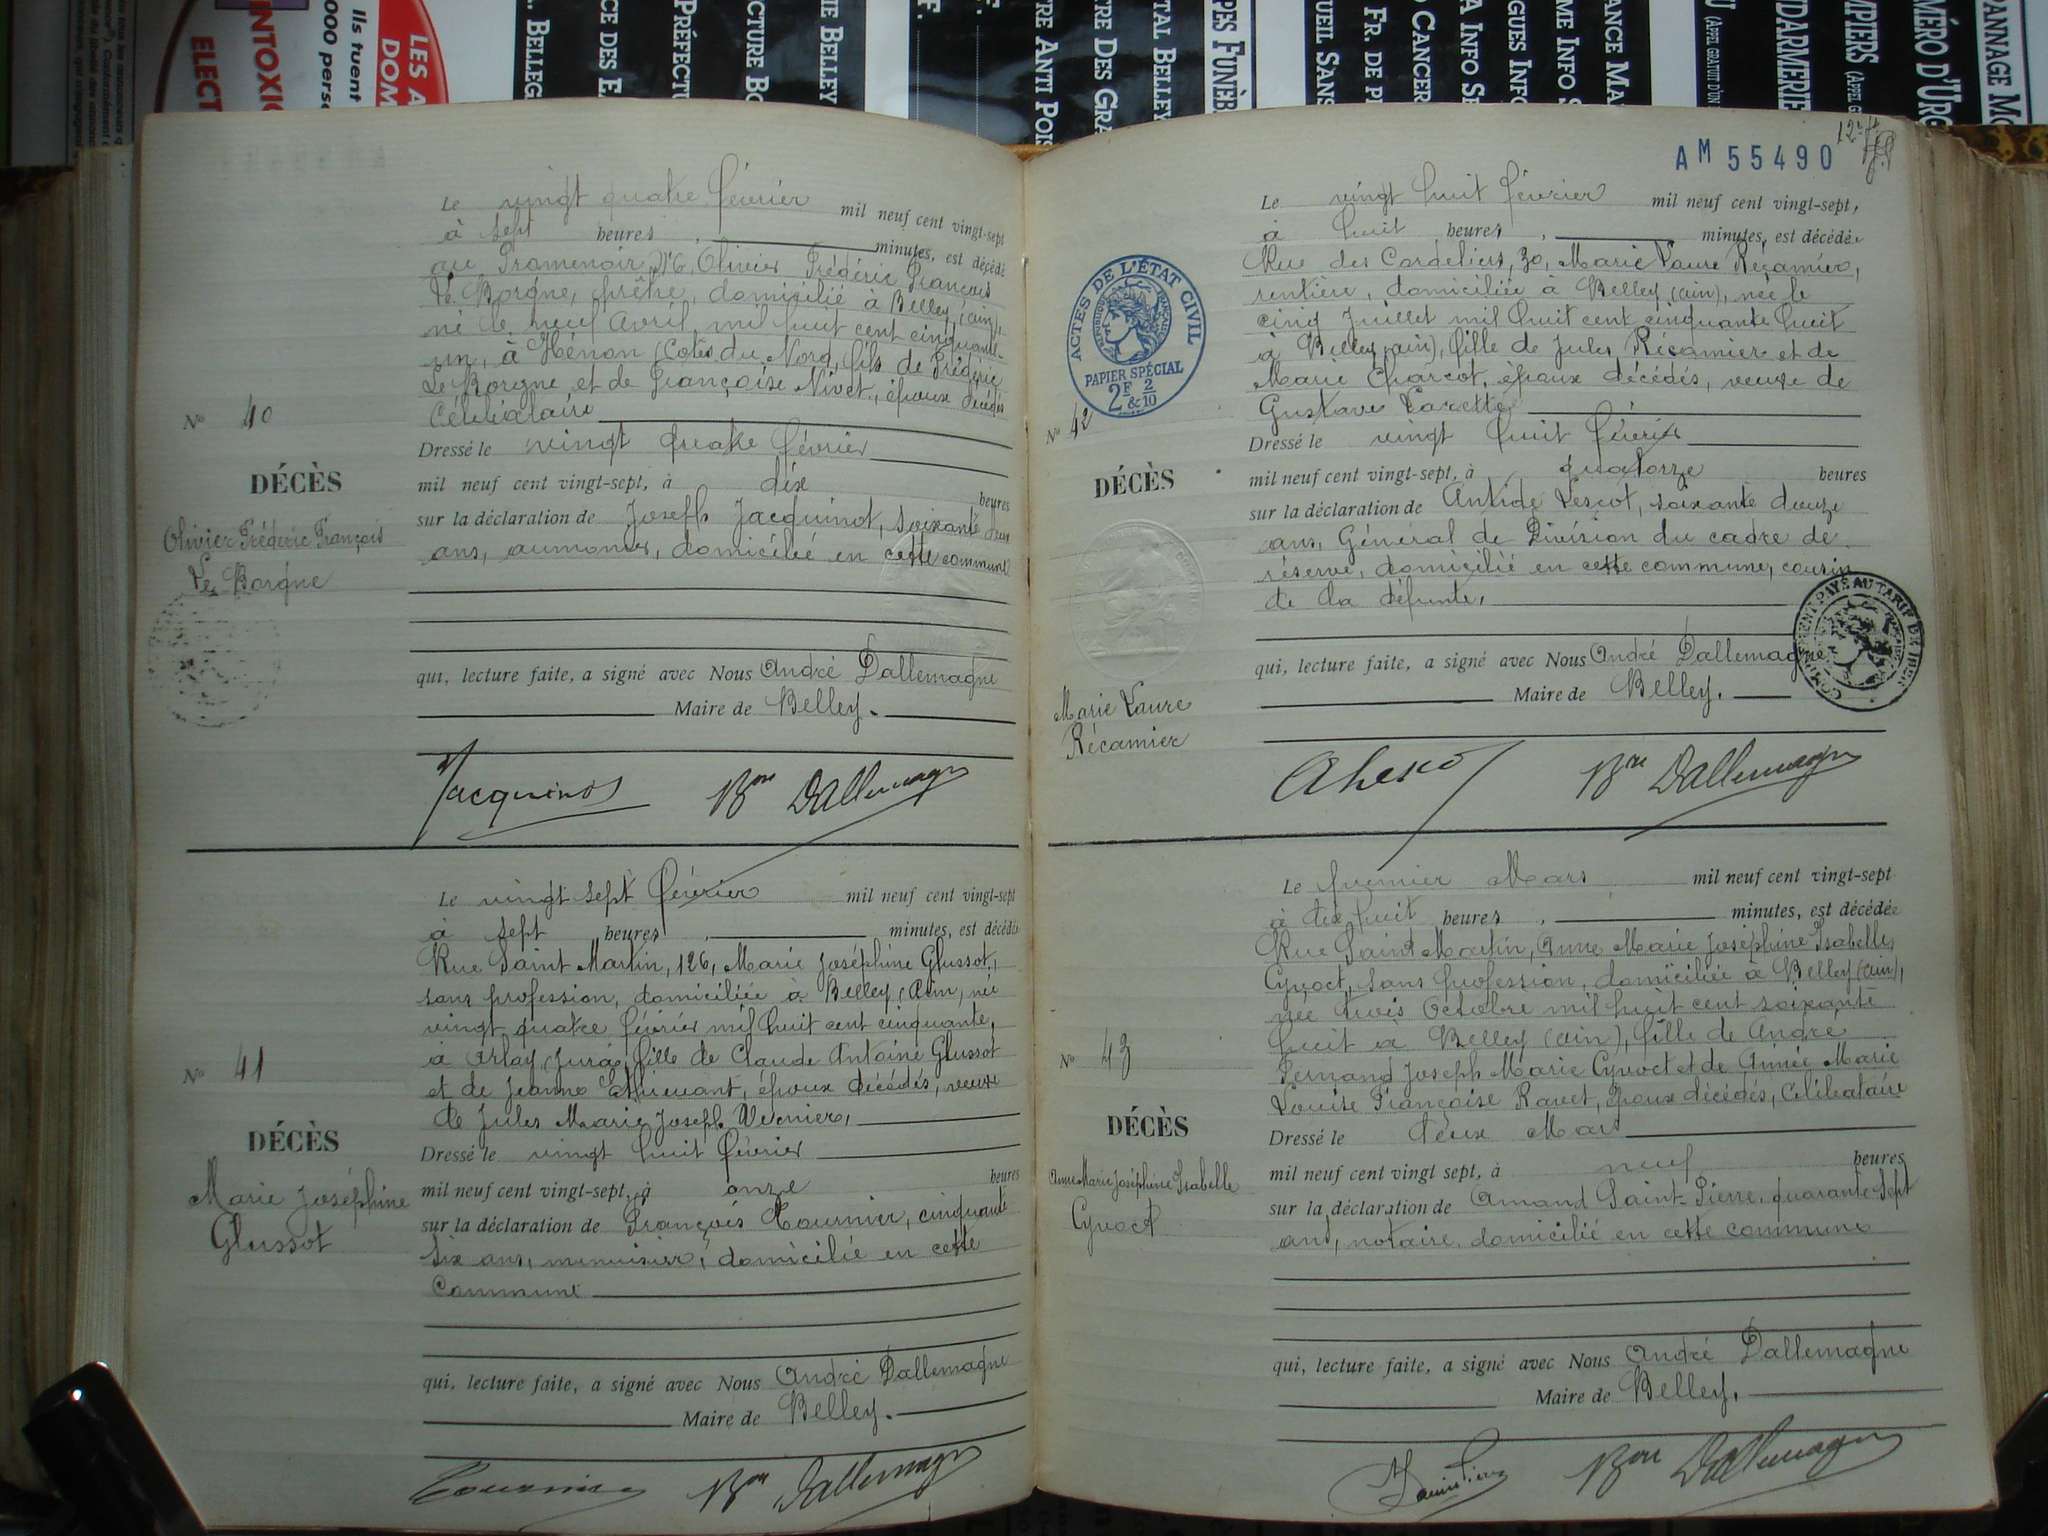 LES A
DOM
Ils tuent
000 perso
INTOXIC
ELECT
BELLEG
CE DES E
PRÉFECTU
CTURE BO
IE BELLEY
F.
TRE ANTI POIS
TRE DES GRA
TAL BELLEY
PES FUNÈB
UEIL SANS
FR. DE P
O CANCER
A INFO SE
GUES INFO
ME INFO S
ANCE MA
U (APPEL GRATUIT D'UN
NDARMERIE
MPIERS (APPEL G
MÉRO D'URG
PANNAGE MO
Le vingt quatre février mil neuf cent vingt-sept
à sept heures, minutes, est décédé
au Promenoir, N° 6, Olivier Frédéric François
Le Borgne, prêtre, domicilié à Belley (ain),
né le neuf Avril mil huit cent cinquante-
un, à Hénon (Cotes du Nord, fils de Frédéric
Le Borgne et de Françoise Nivet, époux décédés
Célibataire
N° 40
Dressé le vingt quatre février
DÉCÈS
mil neuf cent vingt-sept, à dix heures
sur la déclaration de Joseph Jacquinot, soixante deux
ans, aumonier, domicilié en cette commune
Olivier Frédéric François
Le Borgne
qui, lecture faite, a signé avec Nous André Dallemagne
Maire de Belley.
Jacquinot Bon Dallemagne
Le vingt sept février mil neuf cent vingt-sept
à sept heures, minutes, est décédée
Rue Saint Martin, 126, Marie Joséphine Glussot,
sans profession, domiciliée à Belley (Ain, née
vingt quatre février mil huit cent cinquante,
à Arlay (Jura, fille de Claude Antoine Glussot
et de Jeanne époux décédés, veuve
de Jules Marie Joseph Vernier,
N° 41
Dressé le vingt huit février
DÉCÈS
mil neuf cent vingt-sept, à onze heures
sur la déclaration de François Tournier, cinquante
six ans, menuisier, domicilié en cette
commune
Marie Joséphine
Glussot
qui, lecture faite, a signé avec Nous André Dallemagne
Maire de Belley.
Tournier Bon Dallemagne
AM 55490
Le vingt huit février mil neuf cent vingt-sept,
à huit heures, minutes, est décédée
Rue des Cordeliers, 30, Marie Laure Récamier,
rentière, domiciliée à Belley (ain), née le
cinq Juillet mil huit cent cinquante huit
à Belley (ain), fille de Jules Récamier et de
Marie Charcot, époux décédés, veuve de
Gustave
ACTES DE L'ÉTAT CIVIL
RÉPUBLIQUE FRANÇAISE
PAPIER SPÉCIAL
2F & 2/10
N° 42
Dressé le vingt huit février
DÉCÈS
mil neuf cent vingt-sept, à quatorze heures
sur la déclaration de Antide Lescot, soixante douze
ans, Général de Division du cadre de
réserve, domicilié en cette commune, cousin
de la défunte,
COMPLÉMENT PAYÉ AU TARIF DE
Marie Laure
Récamier
qui, lecture faite, a signé avec Nous André Dallemagne
Maire de Belley.
ALescot Bon Dallemagne
Le premier Mars mil neuf cent vingt-sept
à dix huit heures, minutes, est décédée
Rue Saint Martin, Anne Marie Joséphine Isabelle
Cyvoct, sans profession, domiciliée à Belley (ain),
née trois Octobre mil huit cent soixante
huit à Belley (ain), fille de André
Fernand Joseph Marie Cyvoct et de Aimée Marie
Louise Françoise Ravet, époux décédés, Célibataire
N° 43
Dressé le deux Mars
DÉCÈS
mil neuf cent vingt sept, à neuf heures
sur la déclaration de Amand Saint-Pierre, quarante sept
ans, notaire, domicilié en cette commune
Anne Marie Joséphine Isabelle
Cyvoct
qui, lecture faite, a signé avec Nous André Dallemagne
Maire de Belley.
Saint Pierre Bon Dallemagne